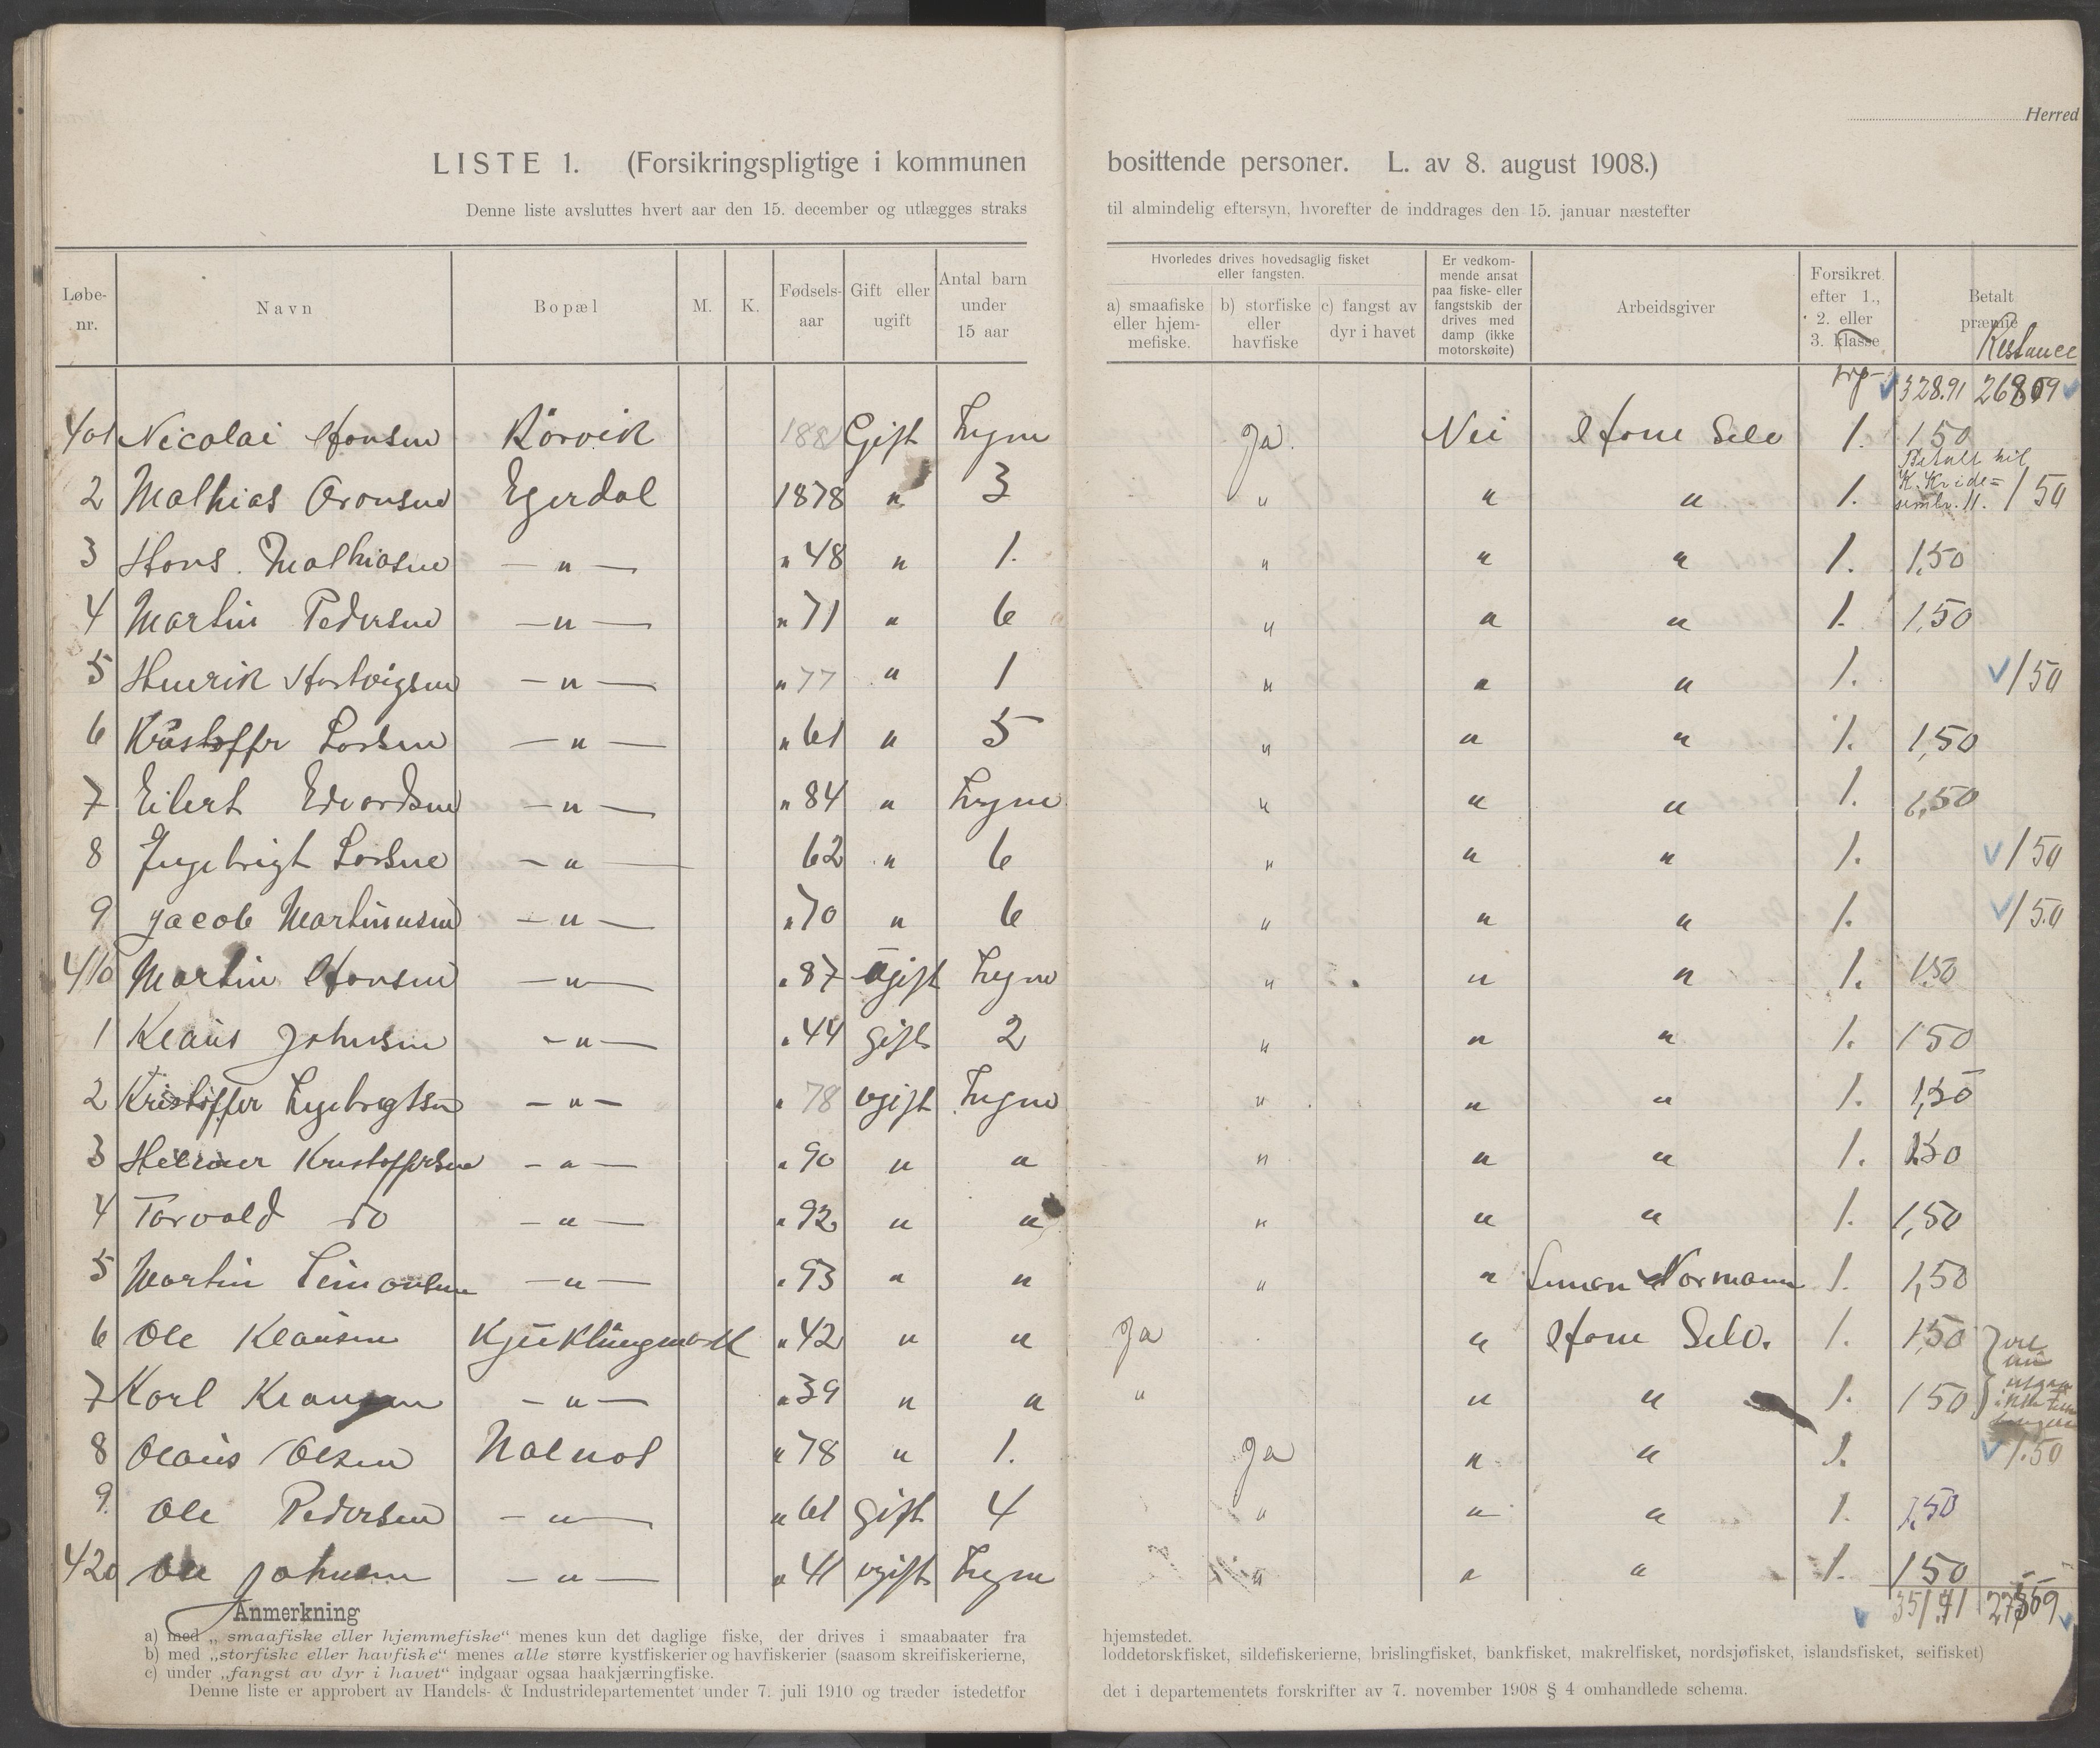 Herred
LISTE 1. (Forsikringspligtige i kommunen bosittende personer. L. av 8. august 1908.)
Denne liste avsluttes hvert aar den 15. december og utlægges straks til almindelig eftersyn, hvorefter de inddrages den 15. januar næstefter
Løbe-nr. Navn Bopæl M. K. Fødsels-aar Gift eller ugift Antal barn under 15 aar
Hvorledes drives hovedsaglig fisket eller fangsten.
a) smaafiske eller hjem-mefiske. b) storfiske eller havfiske c) fangst av dyr i havet
Er vedkom-mende ansat paa fiske- eller fangstskib der drives med damp (ikke motorskøite)
Arbeidsgiver Forsikret efter 1., 2. eller 3. klasse Betalt præmie Restance
328.91 268 09
401 Nicolai Hansen Rörvik 188 Gift Ingen Ja. Nei Hane Selv 1. 1,50
2 Mathias Aronsen Egerdal 1878 " 3 " " " 1. Betalt til K. Kr i de= sembr. 11. 1 50
3 Hans. Mathiasen — " — " 48 " 1. " " " 1. 1,50
4 Martin Pedersen — " — " 71 " 6 " " " 1. 1,50
5 Henrik Hartvigsen — " — " 77 " 1 " " " 1. 1 50
6 Kristoffer Larsen — " — " 61 " 5 " " " 1. 1,50
7 Eilert Edvardsen — " — " 84 " Ingen " " " 1. 1,50
8 Ingebrigt Larsen — " — 62 " 6 " " " 1. 1 50
9 Jacob Martinusen — " — " 70 " 6 " " " 1. 1 50
410 Martin Hansen — " — " 87 Ugift Ingen " " " 1. 1.50
1 Klaus Johnsen — " — " 44 gift 2 " " " 1. 1 50
2 Kristoffer Ingebrigtsen — " — " 78 ugift Ingen " " " 1. 1,50
3 Hilmer Kristoffersen — " — " 90 " " " " " 1. 1.50
4 Torvald do — " — " 92 " " " " " 1. 1,50
5 Martin Simonsen — " — " 93 " " " " Normann 1. 1,50
6 Ole Klausen " 42 " " Ja " Hane Selv. 1. 1,50
7 Karl Klausen — " — " 39 " " " " " 1. 1 50
8 Olaus Olsen " 78 " 1. Ja " " 1. 1.50
9. Ole Pedersen — " — " 61 gift 4 " " " 1. 1,50
420 Ole Johnsen — " — " 41 ugift Ingen " " " 1. 1 50
Anmerkning
a) med „smaafiske eller hjemmefiske“ menes kun det daglige fiske, der drives i smaabaater fra hjemstedet.
b) med „storfiske eller havfiske“ menes alle større kystfiskerier og havfiskerier (saasom skreifiskerierne, loddetorskfisket, sildefiskerierne, brislingfisket, bankfisket, makrelfisket, nordsjøfisket, islandsfisket, seifisket)
c) under „fangst av dyr i havet“ indgaar ogsaa haakjærringfiske.
Denne liste er approbert av Handels- & Industridepartementet under 7. juli 1910 og træder istedetfor det i departementets forskrifter av 7. november 1908 § 4 omhandlede schema.